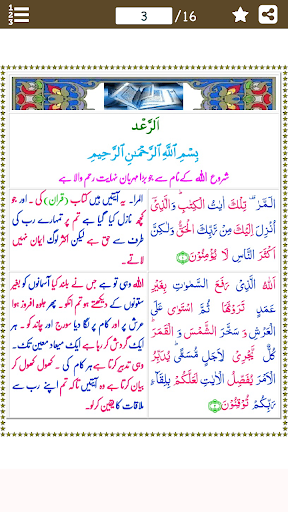 3 /16
اَلرَّعْد
بِسْمِ اللّٰهِ الرَّحْمٰنِ الرَّحِيْمِ
شروع اللہ کے نام سے جو بڑا مہربان نہایت رحم والا ہے
الٓمّٓرٰ ۗ تِلْكَ اٰيٰتُ الْكِتٰبِ ؕ وَالَّذِيْۤ
اُنْزِلَ اِلَيْكَ مِنْ رَّبِّكَ الْحَقُّ وَلٰكِنَّ
اَكْثَرَ النَّاسِ لَا يُؤْمِنُوْنَ ﴿۱﴾
المرا۔ یہ آیتیں ہیں کتاب (قران) کی۔ اور جو
کچھ نازل کیا گیا ہے تم پر تمہارے رب کی
طرف سے حق ہے لیکن اکثر لوگ ایمان نہیں
لاتے۔
اَللّٰهُ الَّذِيْ رَفَعَ السَّمٰوٰتِ بِغَيْرِ
عَمَدٍ تَرَوْنَهَا ثُمَّ اسْتَوٰى عَلَى
الْعَرْشِ وَ سَخَّرَ الشَّمْسَ وَ الْقَمَرَ ؕ
كُلٌّ يَّجْرِيْ لِاَجَلٍ مُّسَمًّى ؕ يُدَبِّرُ
الْاَمْرَ يُفَصِّلُ الْاٰيٰتِ لَعَلَّكُمْ بِلِقَآءِ
رَبِّكُمْ تُوْقِنُوْنَ ﴿۲﴾
اللہ وہی تو ہے جس نے بلند کیا آسمانوں کو بغیر
ستونوں کے دیکھتے ہو تم انکو۔ پھر جلوہ افروز ہوا
عرش پر اور کام پر لگا دیا سورج اور چاند کو۔ ہر
ایک گردش کر رہا ہے ایک میعاد معین تک۔
وہی تدبیر کرتا ہے ہر کام کی۔ کھول کھول کر
بیان کرتا ہے وہ آیتیں تاکہ تم اپنے رب سے
ملاقات کا یقین کر لو۔